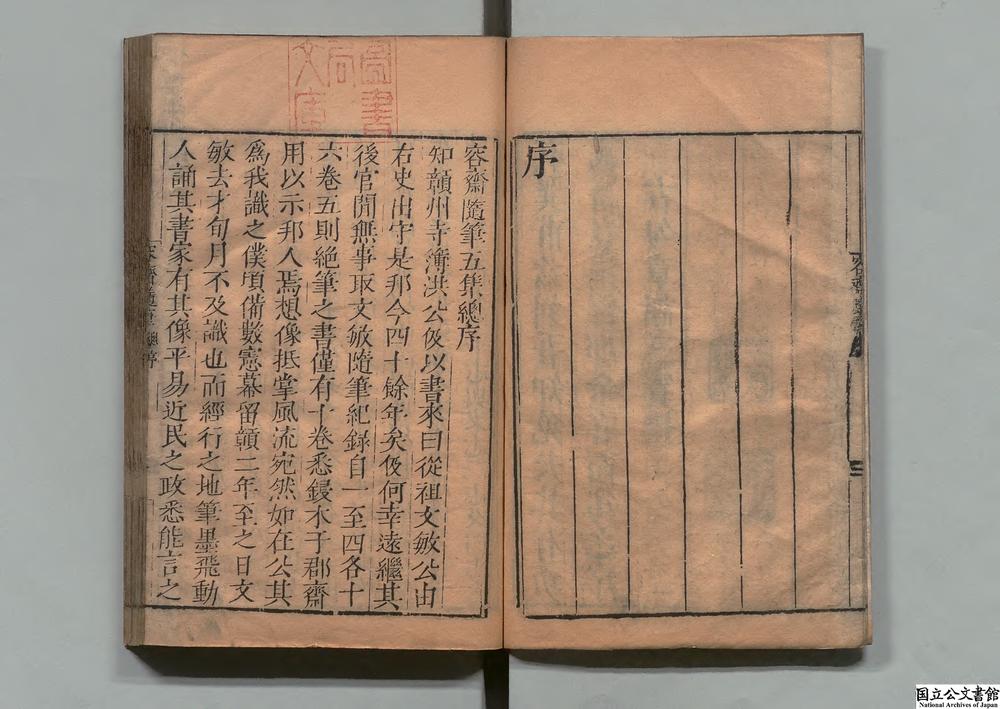 序
容齋隨筆五集總序
知贛州寺簿洪公伋以書來曰從祖文敏公由
右史出守是邦今四十餘年矣伋何幸遠繼其
後官閒無事取文敏隨筆紀録自一至四各十
六卷五則絶筆之書僅有十卷悉鋟木于郡齋
用以示邦人焉想像抵掌風流宛然如在公其
爲我識之僕頃備數憲幕留贛二年至之日文
敏去才旬月不及識也而經行之地筆墨飛動
人誦其書家有其像平易近民之政悉能言之
圖書
局
文庫
国立公文書館
National Archives of Japan